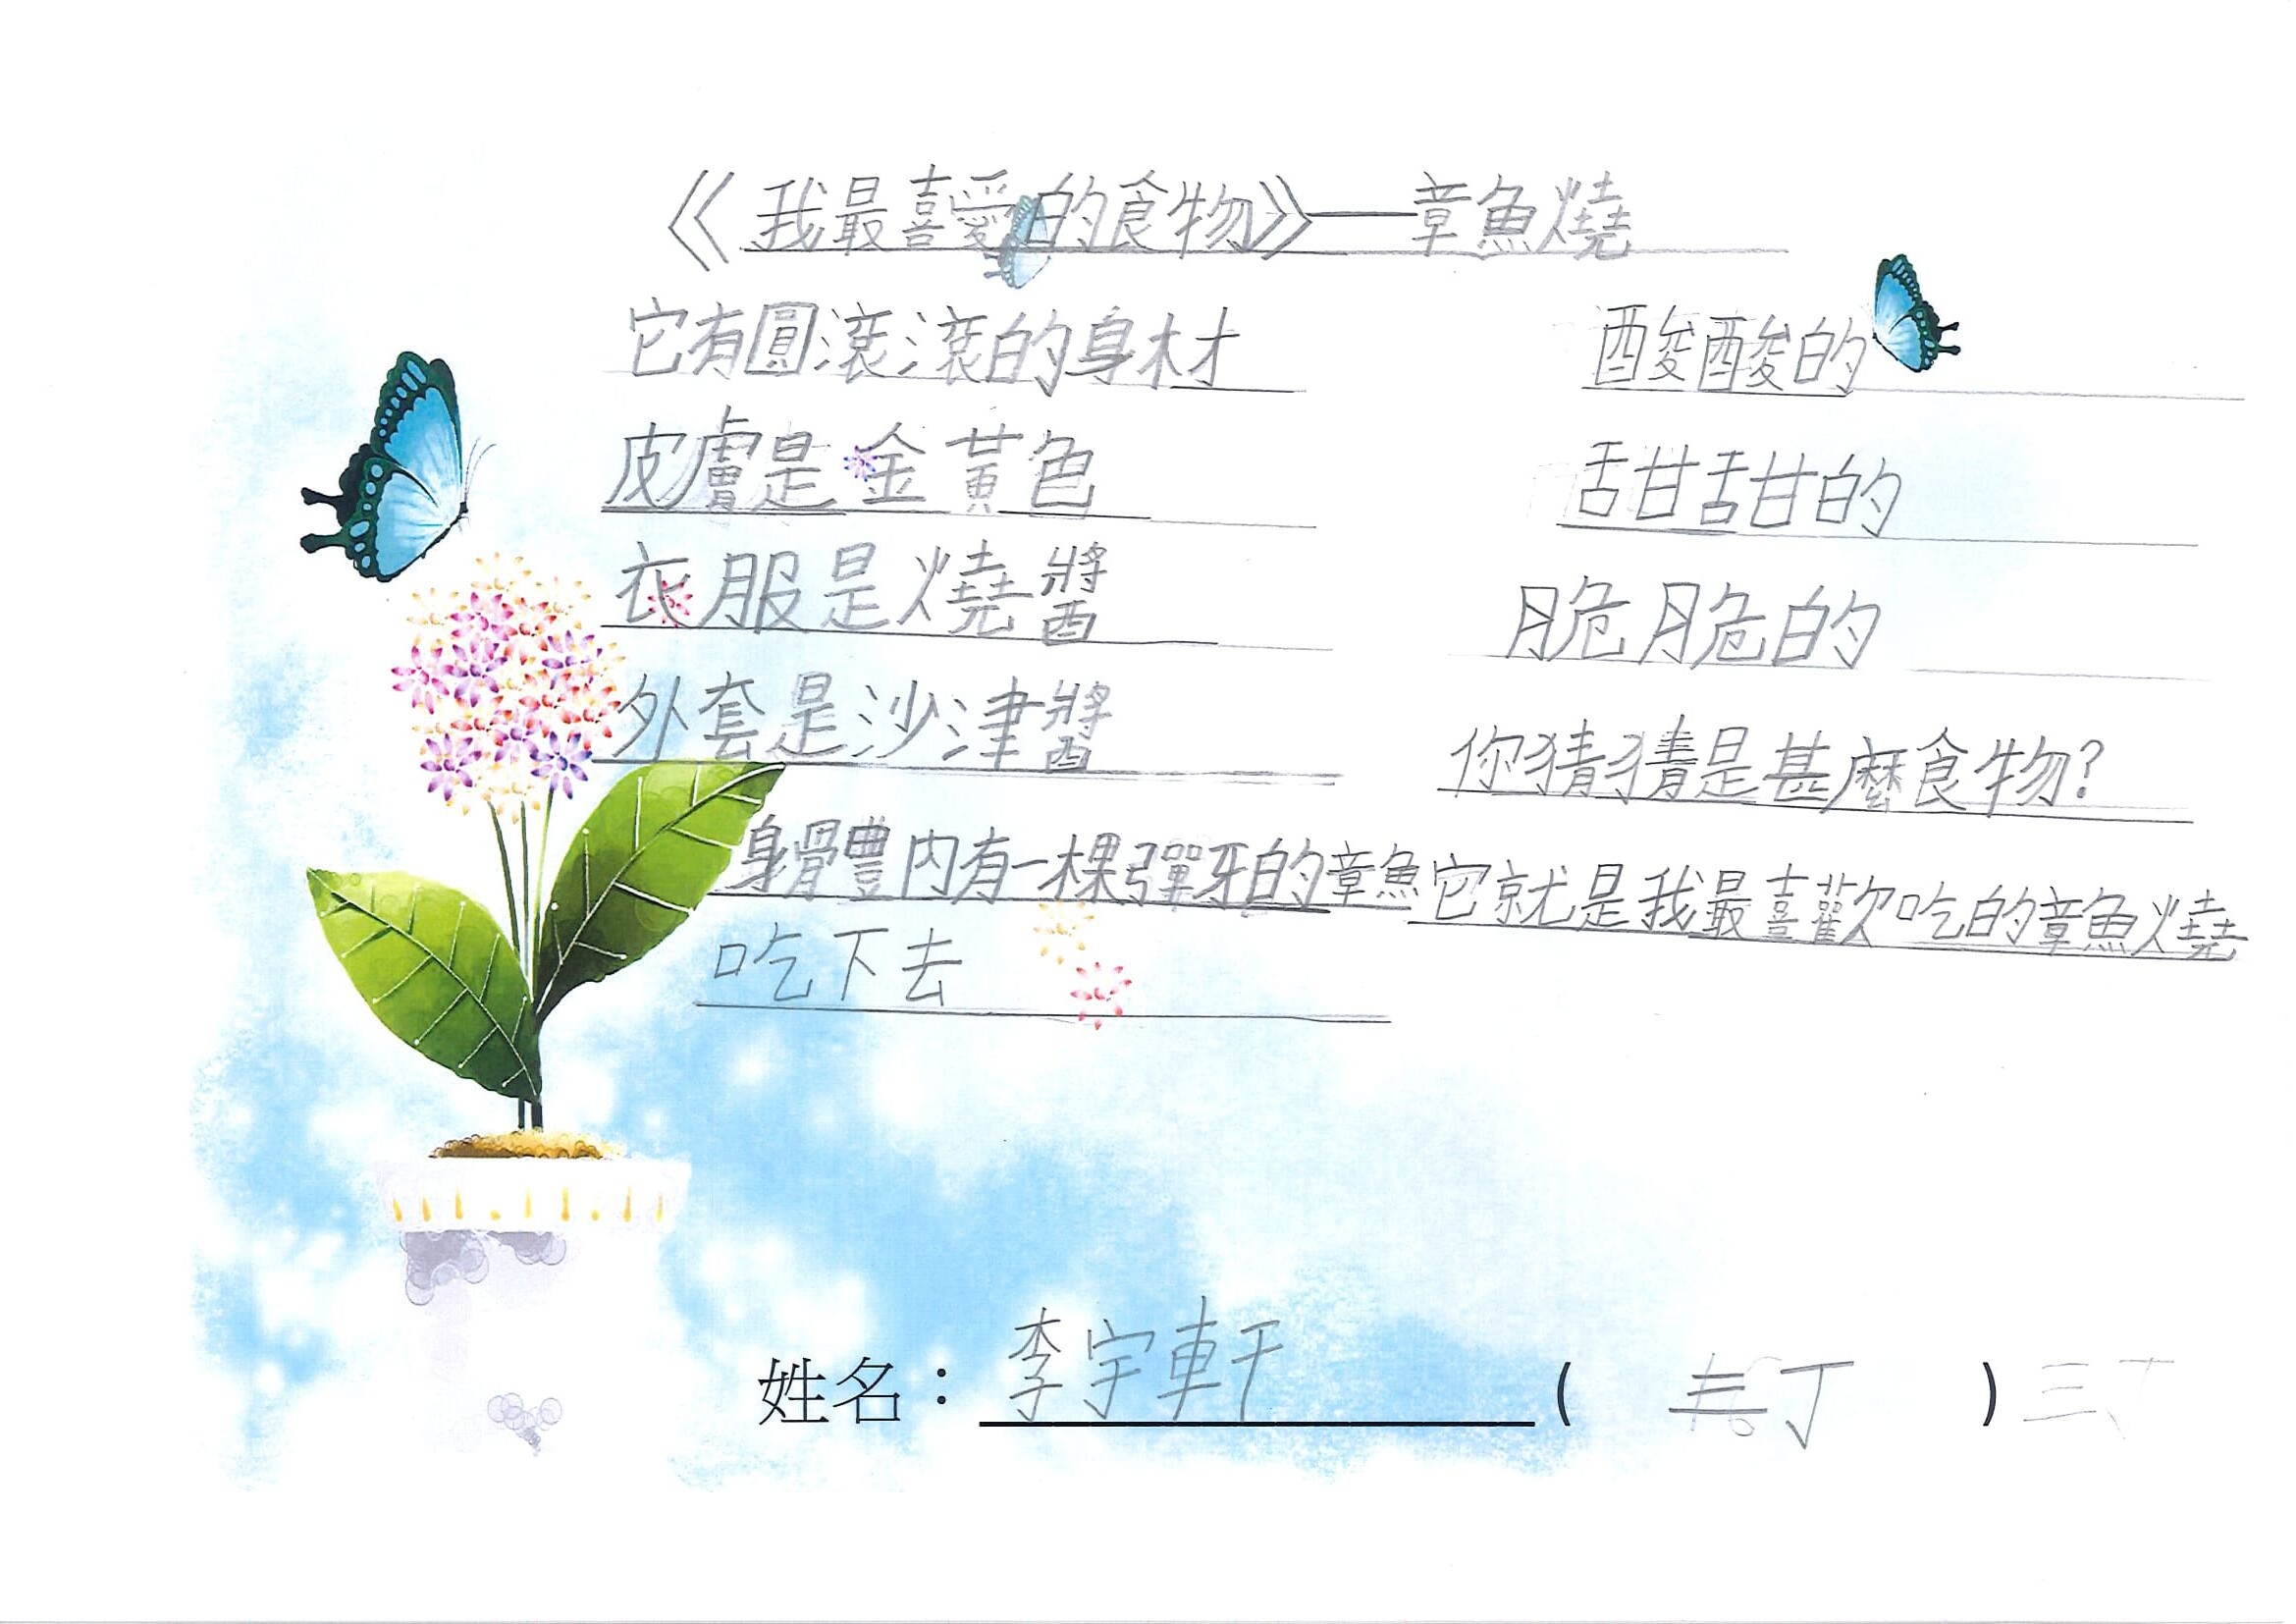 《我最喜愛的食物》——章魚燒
它有圓滾滾的身材
皮膚是金黃色
衣服是燒醬
外套是沙津醬
身體內有一棵彈牙的章魚
吃下去
酸酸的
甜甜的
脆脆的
你猜猜是甚麼食物?
它就是我最喜歡吃的章魚燒
姓名：李宇軒( 三丁 ) 三丁